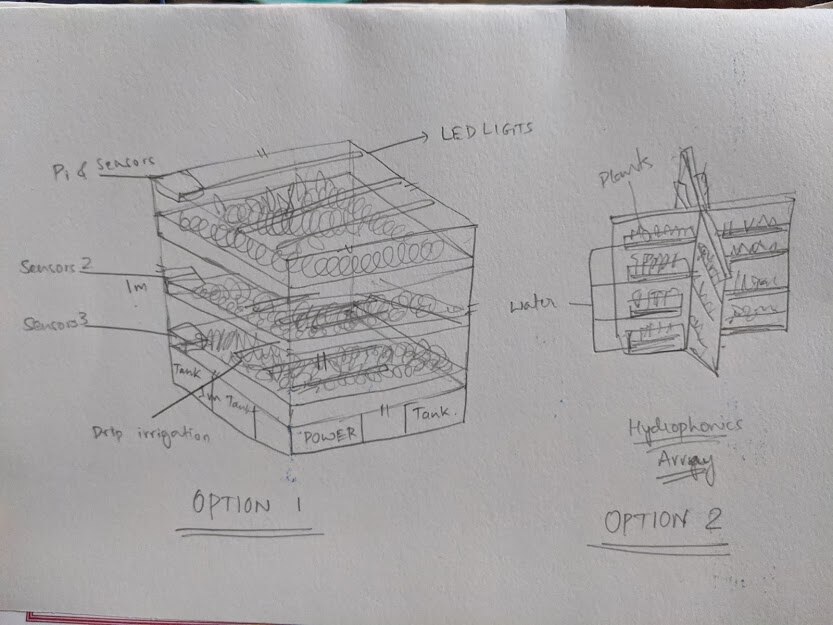 LED LIGITS
Pi & Sensors
Plants
Sensors 2
1m
Water
Sensors 3
Tank
1m Tank
Drip irrigation
POWER
Tank.
Hydrophonics
Array
OPTION 1
OPTION 2